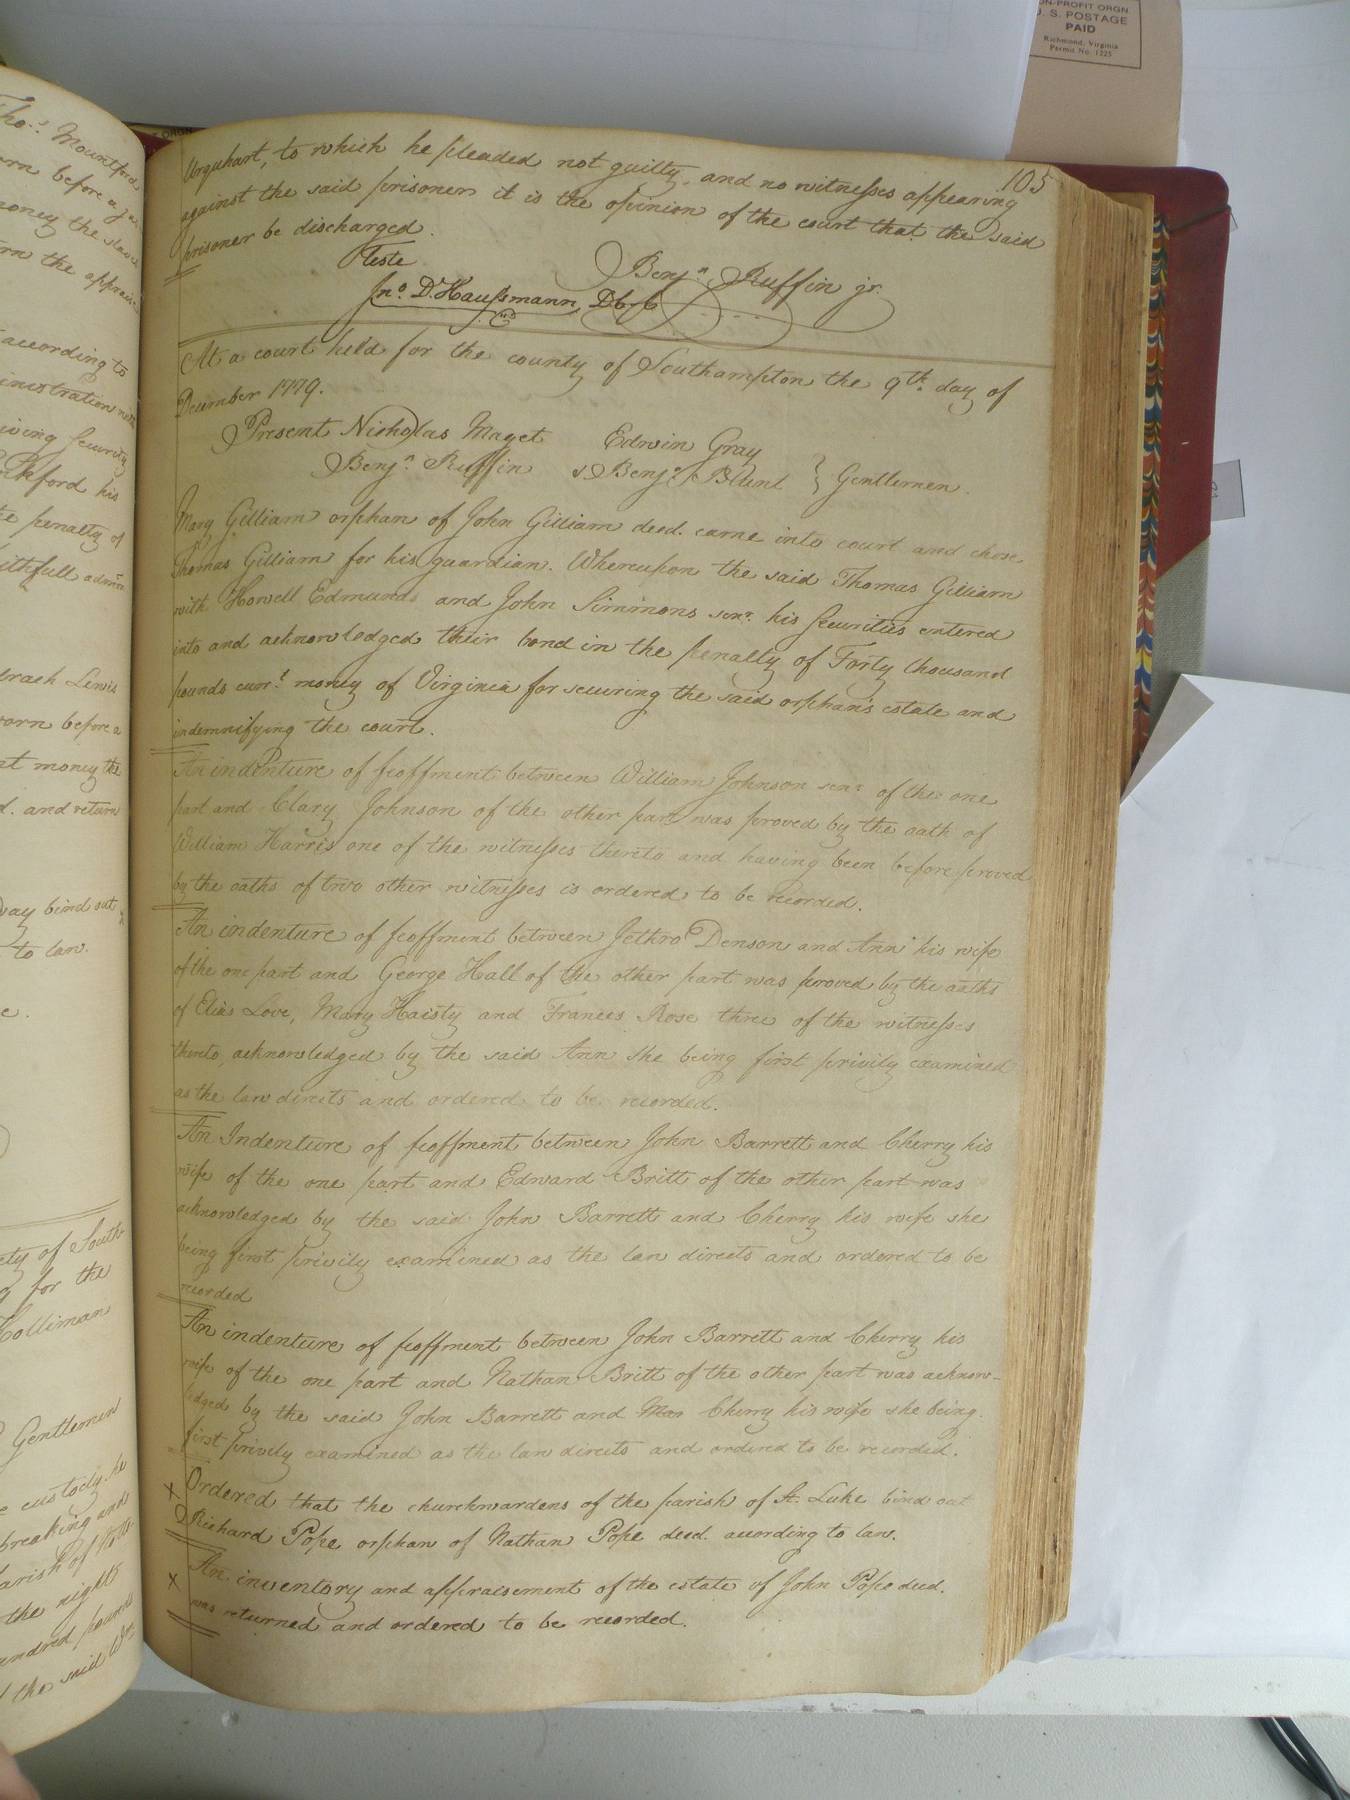 NON-PROFIT ORGN
U. S. POSTAGE
PAID
Richmond, Virginia
Permit No. 1225
105
Urquhart, to which he pleaded not guilty, and no witnesses appearing
against the said prisoner it is the opinion of the court that the said
prisoner be discharged.
Teste
Benjn. Ruffin jr.
Jno. D. Haussmann, D C
At a court held for the county of Southampton the 9th. day of
December 1779.
Present Nicholas Maget Edwin Gray
Benjn. Ruffin & Benjn. Blunt } Gentlemen.
Mary Gilliam orphan of John Gilliam deed. came into court and chose
Thomas Gilliam for his guardian. Whereupon the said Thomas Gilliam
with Howell Edmunds and John Simmons senr. his securities entered
into and acknowledged their bond in the penalty of Forty thousand
pounds curr.t money of Virginia for securing the said orphan's estate and
indemnifying the court.
An indenture of feoffment between William Johnson senr. of the one
part and Clary Johnson of the other part was proved by the oath of
William Harris one of the witnesses thereto and having been before proved
by the oaths of two other witnesses is ordered to be recorded.
An indenture of feoffment between Jethro Denson and Ann his wife
of the one part and George Hall of the other part was proved by the oaths
of Elias Love, Mary Haisty and Frances Rose three of the witnesses
thereto, acknowledged by the said Ann she being first privily examined
as the law directs and ordered to be recorded.
An Indenture of feoffment between John Barrett and Cherry his
wife of the one part and Edward Britt of the other part was
acknowledged by the said John Barrett and Cherry his wife she
being first privily examined as the law directs and ordered to be
recorded
An indenture of feoffment between John Barrett and Cherry his
wife of the one part and Nathan Britt of the other part was acknow-
ledged by the said John Barrett and Mar Cherry his wife she being
first privily examined as the law directs and ordered to be recorded.
x Ordered that the churchwardens of the parish of St. Luke bind out
Richard Pope orphan of Nathan Pope deed. according to law.
x An inventory and appraisement of the estate of John Pope deed.
was returned and ordered to be recorded.
Thos. Mountford
before a
money the slaves
the apprais
according to
administration with
giving security
his
the penalty of
faithfull admin
Lewis
sworn before a
money the
and return
bind out
to law.
of South
for the
Holliman
Gentlemen
custody he
breaking and
parish of
the night
hundred pounds
the said Wm.